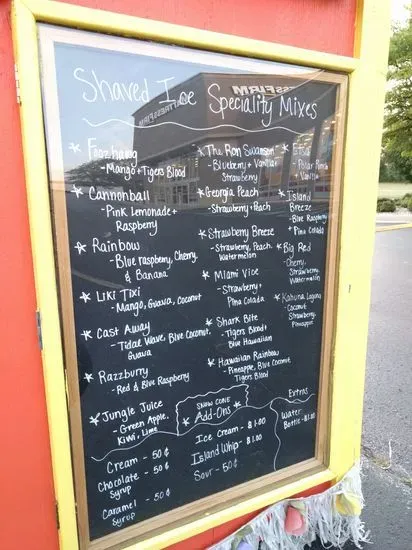 Shaved Ice Speciality Mixes
MATTRESSFIRM
* Foozhawg
- Mango + Tigers Blood
* Cannonball
- Pink Lemonade +
Raspberry
* Rainbow
- Blue raspberry, Cherry,
& Banana
* Liki Tixi
- Mango, Guava, Coconut
* Cast Away
- Tidal Wave, Blue Coconut,
Guava
* Razzburry
- Red & Blue Raspberry
* Jungle Juice
- Green Apple,
Kiwi, Lime
* The Ron Swanson
- Blueberry + Vanilla
Strawberry
* Georgia Peach
- Strawberry + Peach
* Strawberry Breeze
- Strawberry, Peach
Watermelon
* Miami Vice
- Strawberry +
Pina Colada
* Shark Bite
- Tigers Blood +
Blue Hawaiian
* Hawaiian Rainbow
- Pineapple, Blue Coconut
Tigers Blood
- Polar Punch
+ Vanilla
* Island
Breeze
- Blue Raspberry
+ Pina Colada
* Big Red
- Cherry,
Strawberry,
Watermelon
* Kahuna Laguna
- Coconut
Strawberry,
Pineapple
Snow Cone
Add-Ons
Cream - 50¢
Chocolate - 50¢
Syrup
Caramel - 50¢
Syrup
Ice Cream - $1.00
Island Whip - $1.00
Sour - 50¢
Extras
Water
Bottle - $1.00